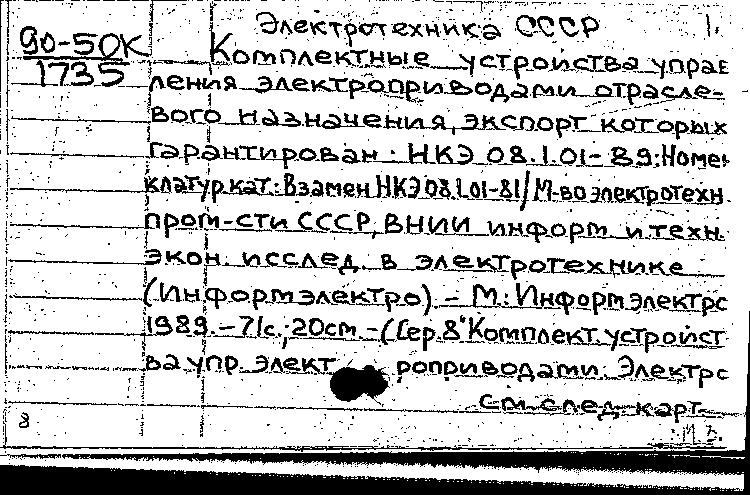 Электротехника СССР 1.
90-50К
1735
Комплектные устройства управ
ления электроприводами отрасле-
вого назначения, экспорт которых
гарантирован: НКЭ 08.1.01-89: Номен
клатур кат.: Взамен НКЭ 08.1.01-81/М-во электротехн.
пром-сти СССР, ВНИИ информ. и техн.
экон. исслед. в электротехнике
(Информэлектро). - М.: Информэлектро
1989. - 71с.; 20см. - (Сер. 8 "Комплект. устройст
ва упр. элект роприводами. Электро
См. след. карт.
8